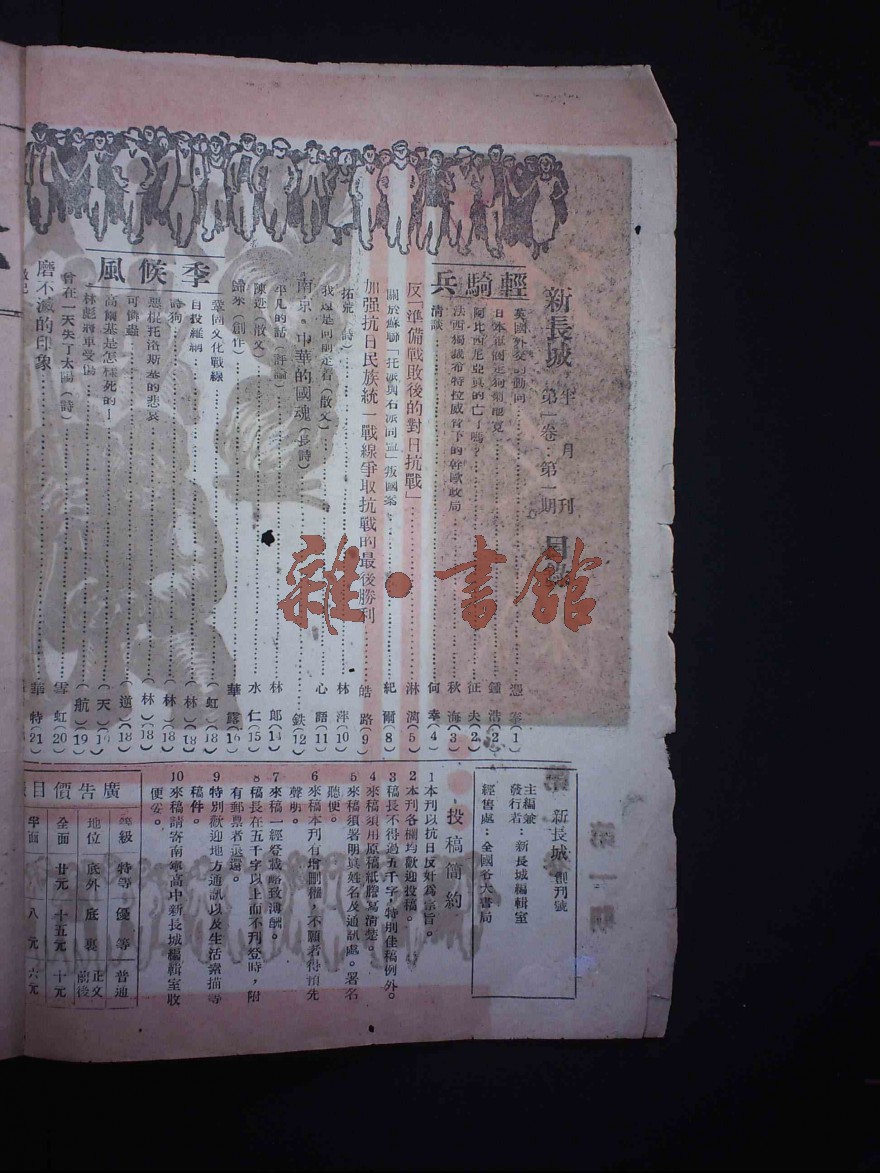 新長城 半月刊 第一卷：第一期 目錄
輕騎兵
英國外交的動向……(1)
日本軍閥走狗須磨……鍾浩(2)
阿比西尼亞真的亡了嗎？……征夫(2)
法西獨裁希特拉威脅下的幹歐政局……秋海(3)
清談……何幸(4)
反「準備戰敗後的對日抗戰」……淋漓(5)
關於蘇聯「托派與右派同盟」叛國案……紀爾(8)
加强抗日民族統一戰線爭取抗戰的最後勝利……皓路(9)
拓荒（詩）……林萍(10)
我還是向前走着（散文）……心語(11)
南京，中華的國魂（長詩）……鉄(12)
平凡的話（評論）……林郎(14)
陳迹（散文）……水仁(15)
歸來（創作）……華露(16)
季候風
鞏固文化戰線……(虹)(18)
自投羅網……(林)(18)
詩狗……(林)(18)
惡棍托洛斯基的悲哀……(林)(18)
可憐蟲……(道)(18)
高爾基是怎樣死的！……(天)
林彪將軍受傷……(航)(19)
曾在一天失了太陽（詩）……雲虹(20)
磨不滅的印象……華特(21)
新長城 創刊號
主編兼發行者：新長城編輯室
經售處：全國各大書局
投稿簡約
1本刊以抗日反奸為宗旨。
2本刊各欄均歡迎投稿。
3稿長不得過五千字，特別佳稿例外。
4來稿須用原稿紙謄寫清楚。
5來稿須署明真姓名及通訊處。署名
聽便。
6來稿本刊有增刪權，不願者得預先
聲明。
7來稿一經登載略致薄酬。
8稿長在五千字以上而不刊登時，附
有郵票者退還。
9特別歡迎地方通訊以及生活素描等
稿件。
10來稿請寄南寧高中新長城編輯室收
便妥。
廣告價目
等級 特等 優等 普通
地位 底外 底裏 正文前後
全面 廿元 十五元 十元
半面 八元 六元
第一期
雜·書館